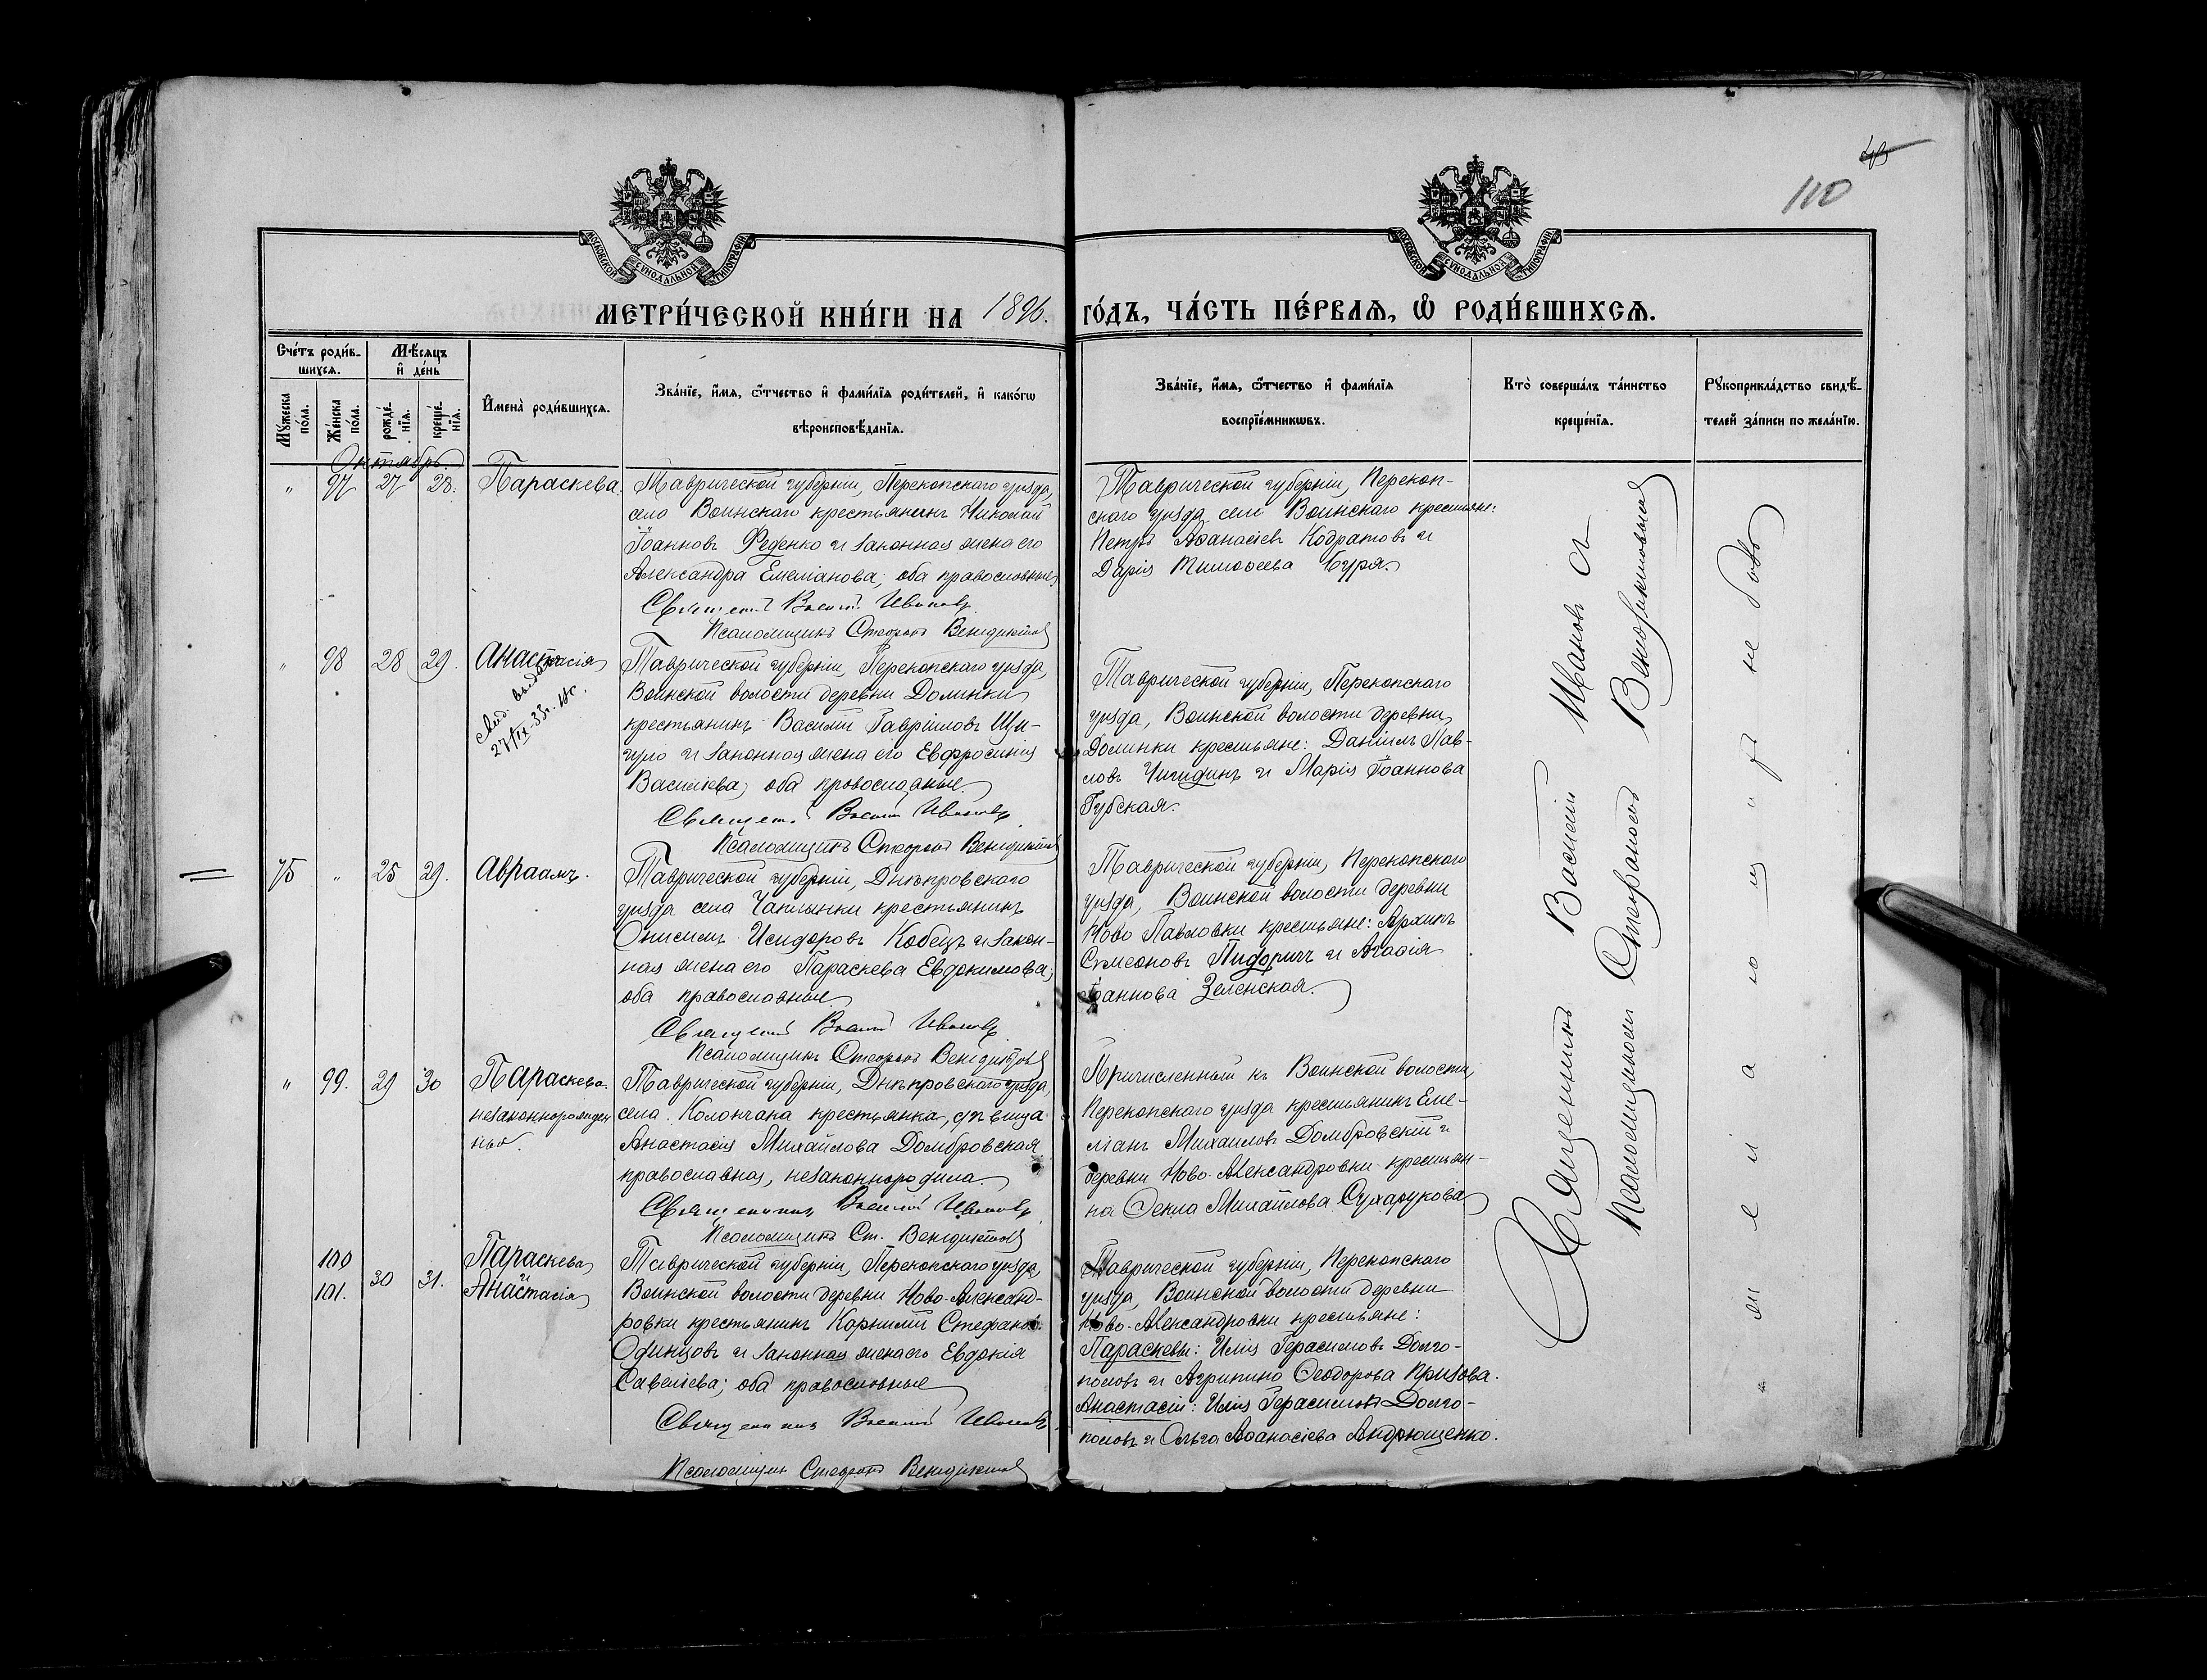 110
МОСКОВСКОЙ СУНОДАЛЬНОЙ ТИПОГРАФІИ
МОСКОВСКОЙ СУНОДАЛЬНОЙ ТИПОГРАФІИ
МЕТРИ́ЧЕСКОЙ КНИ́ГИ НА 1896.
ГО́ДЪ, ЧА́СТЬ ПЕ́РВАѦ, Ѿ РОДИ́ВШИХСѦ.
Сче́тъ роди́в-
шихсѧ.
Мѣ́сѧцъ
и҆ де́нь
Мꙋ́жеска
по́ла.
Же́нска
по́ла.
рожде́-
нїѧ.
креще́-
нїѧ.
И҆мена̀ роди́вшихсѧ.
Зва́нїе, и҆́мѧ, ѻ҆́тчество и҆ фами́лїѧ роди́телей, и҆ како́гѡ
вѣроисповѣ́данїѧ.
Зва́нїе, и҆́мѧ, ѻ҆́тчество и҆ фами́лїѧ
воспрїе́мникѡвъ.
Кто̀ соверша́лъ та́инство
креще́нїѧ.
Рꙋкоприкла́дство свидѣ́-
телей за́писи по жела́нїю.
Октябрь.
" 97 27 28. Параскева.
Таврической губерніи, Перекопскаго уѣзда,
села Воинскаго крестьянинъ Николай
Іоанновъ Феденко и законная жена его
Александра Емеліанова; оба православные
Священ. Василій Ивановъ.
Псаломщикъ Стефанъ Венедиктовъ
Таврической губерніи, Перекоп-
скаго уѣзда села Воинскаго крестьяне:
Петръ Аѳанасіевъ Кодратовъ и
Дарія Тимоѳеева Буря.
" 98 28 29. Анастасія
Свид. выдано
27/IX-33г.
Таврической губерніи, Перекопскаго уѣзда,
Воинской волости деревни Долинки
крестьянинъ Василій Гавріиловъ Щи-
гуло и законная жена его Евфросинія
Василіева; оба православные.
Священ. Василій Ивановъ
Псаломщикъ Стефанъ Венедиктовъ
Таврической губерніи, Перекопскаго
уѣзда, Воинской волости деревни
Долинки крестьяне: Даніилъ Пав-
ловъ Чигидинъ и Марія Іоаннова
Губская.
75 " 25 29. Авраамъ.
Таврической губерніи, Днѣпровскаго
уѣзда села Чаплинки крестьянинъ
Онисимъ Исидоровъ Кобецъ и закон-
ная жена его Параскева Евдокимова;
оба православные
Священ. Василій Ивановъ
Псаломщикъ Стефанъ Венедиктовъ
Таврической губерніи, Перекопскаго
уѣзда, Воинской волости деревни
Ново Павловки крестьяне: Архипъ
Симеоновъ Пидоричъ и Агаѳія
Іоаннова Зеленская.
" 99. 29 30 Параскева.
незаконнорожден
ная.
Таврической губерніи, Днѣпровскаго уѣзда,
села Колончака крестьянка, дѣвица
Анастасія Михайлова Домбровская
православная, незаконнородила.
Священникъ Василій Ивановъ
Псаломщикъ Ст. Венедиктовъ
Причисленный къ Воинской волости,
Перекопскаго уѣзда крестьянинъ Еме-
ліанъ Михаиловъ Домбровскій и
деревни Ново-Александровки крестьян-
ка Ѳекла Михайлова Сухарукова
100
101. 30 31. Параскева
и
Анастасія
Таврической губерніи, Перекопскаго уѣзда,
Воинской волости деревни Ново-Александ-
ровки крестьянинъ Корнилій Стефановъ
Одинцовъ и законная жена его Евдокія
Савеліева; оба православные
Священникъ Василій Ивановъ
Псаломщикъ Стефанъ Венедиктовъ
Таврической губерніи, Перекопскаго
уѣзда, Воинской волости деревни
Ново-Александровки крестьяне:
Параскевы: Илія Герасимовъ Долго-
половъ и Агрипина Ѳеодорова Призова.
Анастасіи: Илія Герасимовъ Долго-
половъ и Ольга Аѳанасіева Андрющенко.
Священникъ Василій Ивановъ съ
Псаломщикомъ Стефаномъ Венедиктовымъ